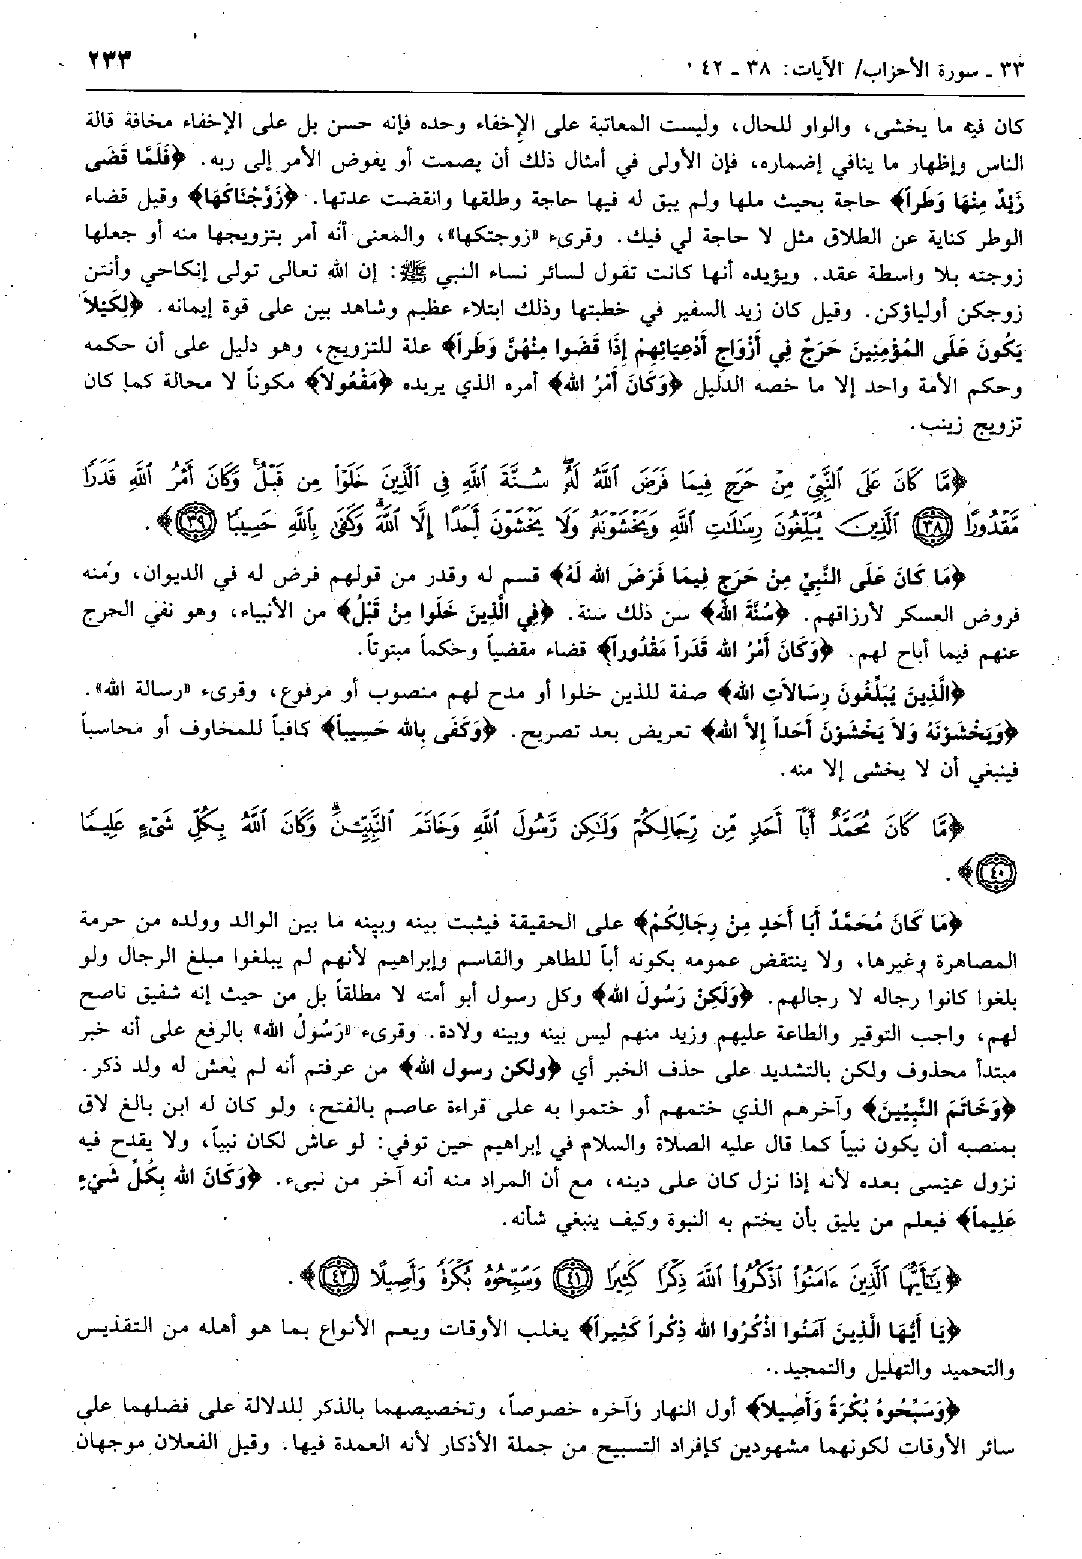 ٣٣ ـ سورة الأحزاب/ الآيات: ٣٨ ـ ٤٢
٢٣٣
كان فيه ما يخشى، والواو للحال، وليست المعاتبة على الإِخفاء وحده فإنه حسن بل على الإِخفاء مخافة قالة
الناس وإظهار ما ينافي إضماره، فإن الأولى في أمثال ذلك أن يصمت أو يفوض الأمر إلى ربه. ﴿فَلَمَّا قَضَى
زَيْدٌ مِنْهَا وَطَراً﴾ حاجة بحيث ملها ولم يبق له فيها حاجة وطلقها وانقضت عدتها. ﴿زَوَّجْنَاكَهَا﴾ وقيل قضاء
الوطر كناية عن الطلاق مثل لا حاجة لي فيك. وقرىء «زوجتكها»، والمعنى أنه أمر بتزويجها منه أو جعلها
زوجته بلا واسطة عقد. ويؤيده أنها كانت تقول لسائر نساء النبي ﷺ: إن الله تعالى تولى إنكاحي وأنتن
زوجكن أولياؤكن. وقيل كان زيد السفير في خطبتها وذلك ابتلاء عظيم وشاهد بين على قوة إيمانه. ﴿لِكَيْلاَ
يَكُونَ عَلَى المُؤْمِنِينَ حَرَجٌ فِي أَزْوَاجِ أَدْعِيَائِهِمْ إِذَا قَضَوا مِنْهُنَّ وَطَراً﴾ علة للتزويج، وهو دليل على أن حكمه
وحكم الأمة واحد إلا ما خصه الدليل ﴿وَكَانَ أَمْرُ الله﴾ أمره الذي يريده ﴿مَفْعُولاً﴾ مكوناً لا محالة كما كان
تزويج زينب.
﴿مَّا كَانَ عَلَى ٱلنَّبِيِّ مِنْ حَرَجٍ فِيمَا فَرَضَ ٱللَّهُ لَهُۥ سُنَّةَ ٱللَّهِ فِى ٱلَّذِينَ خَلَوْا۟ مِن قَبْلُ وَكَانَ أَمْرُ ٱللَّهِ قَدَرًا
مَّقْدُورًا ﴿٣٨﴾ ٱلَّذِينَ يُبَلِّغُونَ رِسَٰلَٰتِ ٱللَّهِ وَيَخْشَوْنَهُۥ وَلَا يَخْشَوْنَ أَحَدًا إِلَّا ٱللَّهَ وَكَفَىٰ بِٱللَّهِ حَسِيبًا ﴿٣٩﴾﴾.
﴿مَا كَانَ عَلَى النَّبِيِّ مِنْ حَرَجٍ فِيمَا فَرَضَ الله لَهُ﴾ قسم له وقدر من قولهم فرض له في الديوان، ومنه
فروض العسكر لأرزاقهم. ﴿سُنَّةَ الله﴾ سن ذلك سنة. ﴿فِي الَّذِينَ خَلَوا مِنْ قَبْلُ﴾ من الأنبياء، وهو نفي الحرج
عنهم فيما أباح لهم. ﴿وَكَانَ أَمْرُ الله قَدَراً مَقْدُوراً﴾ قضاء مقضياً وحكماً مبتوتاً.
﴿الَّذِينَ يُبَلِّغُونَ رِسَالاَتِ الله﴾ صفة للذين خلوا أو مدح لهم منصوب أو مرفوع، وقرىء «رسالة الله».
﴿وَيَخْشَوْنَهُ وَلاَ يَخْشَوْنَ أَحَداً إِلاَّ الله﴾ تعريض بعد تصريح. ﴿وَكَفَى بِالله حَسِيباً﴾ كافياً للمخاوف أو محاسباً
فينبغي أن لا يخشى إلا منه.
﴿مَّا كَانَ مُحَمَّدٌ أَبَآ أَحَدٍ مِّن رِّجَالِكُمْ وَلَٰكِن رَّسُولَ ٱللَّهِ وَخَاتَمَ ٱلنَّبِيِّـۧنَ وَكَانَ ٱللَّهُ بِكُلِّ شَىْءٍ عَلِيمًا
﴿٤٠﴾﴾.
﴿مَا كَانَ مُحَمَّدٌ أَبَا أَحَدٍ مِنْ رِجَالِكُمْ﴾ على الحقيقة فيثبت بينه وبينه ما بين الوالد وولده من حرمة
المصاهرة وغيرها، ولا ينتقض عمومه بكونه أباً للطاهر والقاسم وإبراهيم لأنهم لم يبلغوا مبلغ الرجال ولو
بلغوا كانوا رجاله لا رجالهم. ﴿وَلَكِنْ رَسُولَ الله﴾ وكل رسول أبو أمته لا مطلقاً بل من حيث إنه شفيق ناصح
لهم، واجب التوقير والطاعة عليهم وزيد منهم ليس بينه وبينه ولادة. وقرىء «رَسُولُ الله» بالرفع على أنه خبر
مبتدأ محذوف ولكن بالتشديد على حذف الخبر أي ﴿ولكن رسول الله﴾ من عرفتم أنه لم يعش له ولد ذكر.
﴿وَخَاتَمَ النَّبِيِّينَ﴾ وآخرهم الذي ختمهم أو ختموا به على قراءة عاصم بالفتح، ولو كان له ابن بالغ لاق
بمنصبه أن يكون نبياً كما قال عليه الصلاة والسلام في إبراهيم حين توفي: لو عاش لكان نبياً، ولا يقدح فيه
نزول عيسى بعده لأنه إذا نزل كان على دينه، مع أن المراد منه أنه آخر من نبىء. ﴿وَكَانَ الله بِكُلِّ شَيْءٍ
عَلِيماً﴾ فيعلم من يليق بأن يختم به النبوة وكيف ينبغي شأنه.
﴿يَٰٓأَيُّهَا ٱلَّذِينَ ءَامَنُوا۟ ٱذْكُرُوا۟ ٱللَّهَ ذِكْرًا كَثِيرًا ﴿٤١﴾ وَسَبِّحُوهُ بُكْرَةً وَأَصِيلًا ﴿٤٢﴾﴾.
﴿يَا أَيُّهَا الَّذِينَ آمَنُوا اذْكُرُوا الله ذِكْراً كَثِيراً﴾ يغلب الأوقات ويعم الأنواع بما هو أهله من التقديس
والتحميد والتهليل والتمجيد.
﴿وَسَبِّحُوهُ بُكْرَةً وَأَصِيلاً﴾ أول النهار وآخره خصوصاً، وتخصيصهما بالذكر للدلالة على فضلهما على
سائر الأوقات لكونهما مشهودين كإفراد التسبيح من جملة الأذكار لأنه العمدة فيها. وقيل الفعلان موجهان